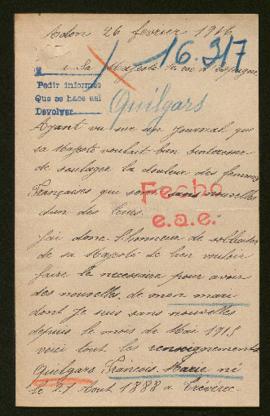 26 février 1916
16.317
à Sa Majesté le roi d'Espagne
Pedir informes
Que se hace así
Devolver
Quilgars
Ayant vu sur un journal que
sa Majesté voulait bien
de soulager la douleur des femmes
Françaises qui sont sans nouvelles
d'un des leurs
Fecho
e.a.e.
J'ai donc l'honneur de solliciter
de sa Majesté de bien vouloir
faire le nécessaire pour avoir
des nouvelles, de mon mari
dont je suis sans nouvelles
depuis le mois de Mai 1915
voici tout les renseignements
Quilgars François Marie né
le 27 Aout 1888 à